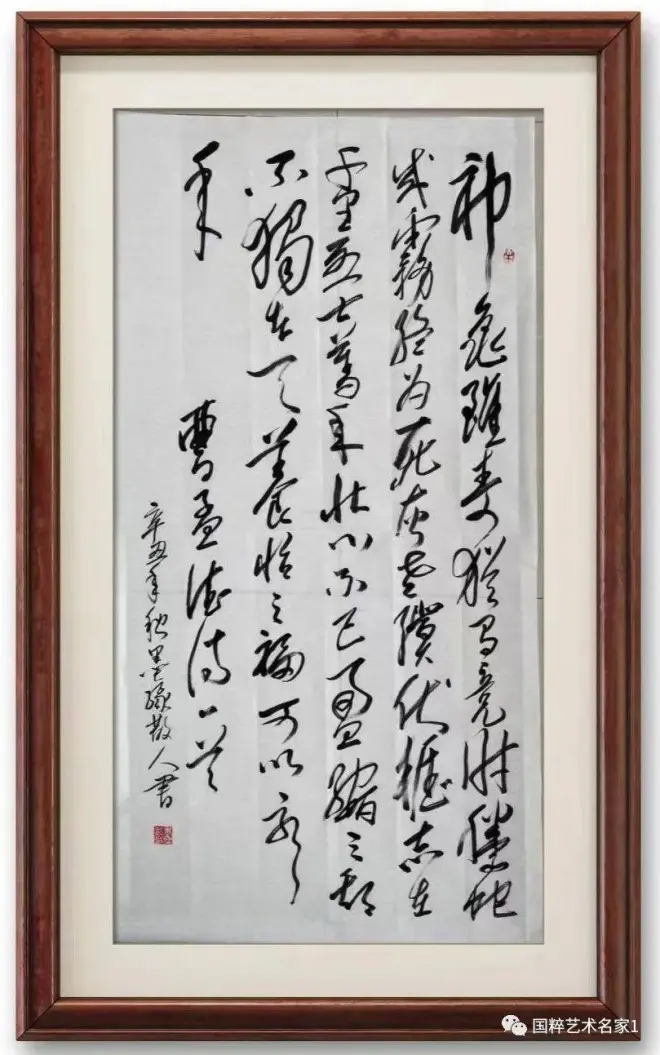 神龜雖寿猶有竟时騰蛇
成霧終为死灰老驥伏櫪志在
千里烈士暮年壮心不已盈縮之期
不獨在天養怡之福可以永
年
曹孟德诗一首
辛丑年秋墨緣散人書
国粹艺术名家1